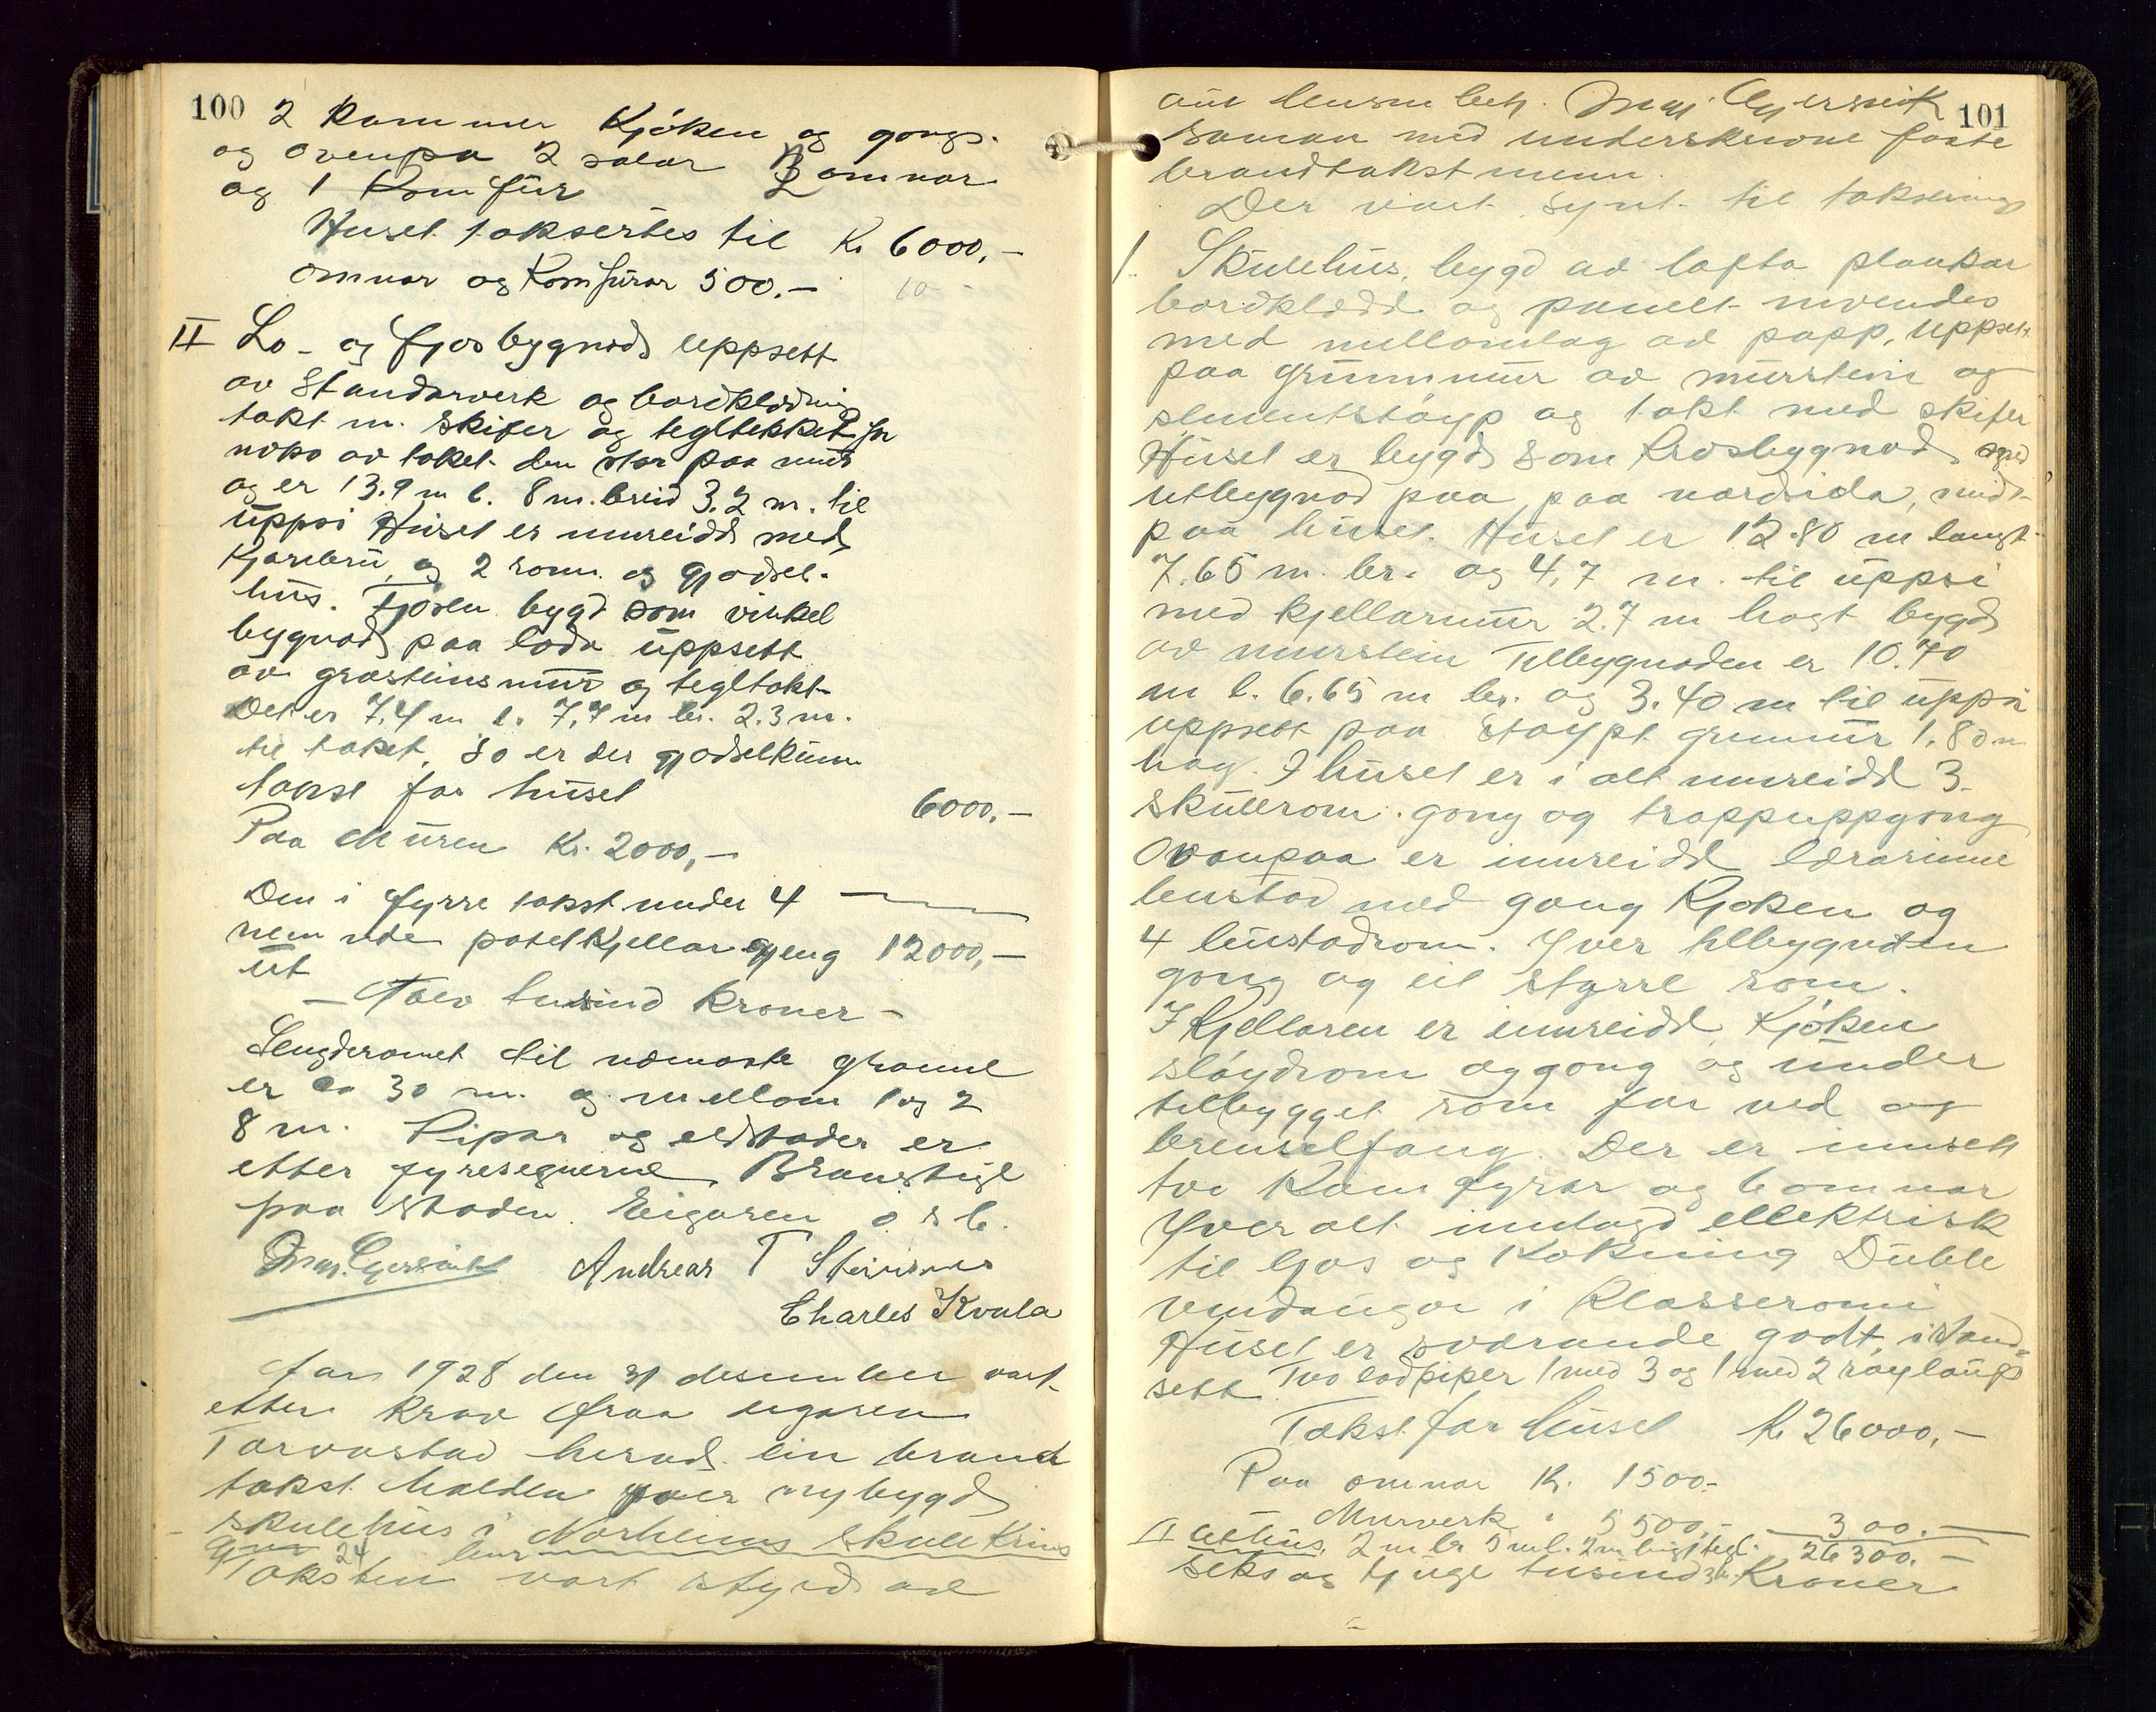 100
2 Kammer Kjøken og gongs.
og ovenpa 2 salar 2 omnar
og 1 Komfür
Huset taksertes til Kr 6000,-
omnar og Komfürar 500.-
II Lo- og fjosbygnad uppsett
av Standarverk og bordklædning
takt m. skifer og tegltekket for
noko av taket. den star paa mür
og er 13.9 m l. 8 m. breid 3.2 m. til
üppsi Hüset er innreidd med
Kjørebrü og 2 rom og gjødsel-
hüs. Fjosen bygd som vinkel
bygnad paa loda üppsett
av grosteinsmür og tegltakt
Det er 7,4 m l. 7,7 m br. 2.3 m.
til taket. So er der gjødselkum
takst for hüset 6000.-
Paa Müren Kr. 2000,-
Den i fyrre takst under 4
nemnde potetkjellar gjeng 12000,-
üt
- Tolv tusind Kroner -
Lengderomet til næmaste granne
er ca 30 m. og mellom 1 og 2
8 m. Pipor og eldstader er
etter fyresegnerne Branstige
paa staden. Eigaren o s b.
Andreas T Steinsnes
Charles Kvala
Aar 1928 den 31 desember vart
etter Krav fraa eigaren
Torvastad herad ein brand
takst halden yver nybygd
skulehüs i Norheims skule Krins
24
Taksten vart styrd av
101
aut lensm betj.
saman med underskrivne faste
brandtakstmenn.
Der vart synt til taksering
1. Skulehüs, bygd av lafta plankar
bordklædd og panelt invendes
med mellomlag av papp, uppsett
paa grünnmür av mürstein og
sementstøyp og takt med skifer
Hüset er bygd som Krosbygnad med
utbygnad paa paa nordsida, midt
paa hüset. Hüset er 12.80 m langt
7.65 m. br. og 4,7 m. til üppsi
med kjellarmür 2.7 m høgt bygd
av mürstein Tilbygnaden er 10.70
m l. 6.65 m br. og 3.40 m til üppsi
uppsett paa støypt grunmür 1.80 m
høg. I hüset er i alt innreidd 3
skülerom gong og trappuppgong
Ovanpaa er innreidd lærarinne
bustad med gong Kjøken og
4 büstadrom. Yver tilbygnaden
gong og eit størrе rom.
I Kjellaren er innreidd Kjøken
sløydrom og gong og ünder
tilbygget rom for ved og
brenselfang. Der er innsett
tvo Komfyrar og 6 omnar
Yver alt innlagd ellektrisk
til ljos og Kokning Düble
vindaügo i Klasseromi
Hüset er sværande godt, istand-
sett Tvo lodpiper 1 med 3 og 1 med 2 røylaüp
Takst for hüset Kr 26000,-
Paa omnar Kr. 1500.-
Mürverk " 5500,- 300.-
II üthüs 2 m br 5 m l. 2 m høgt tegl. 26300.-
seks og tjüge tüsind 3 h. Kroner